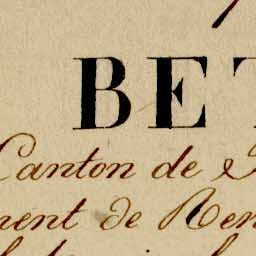 BET
Canton de
ment de Ren